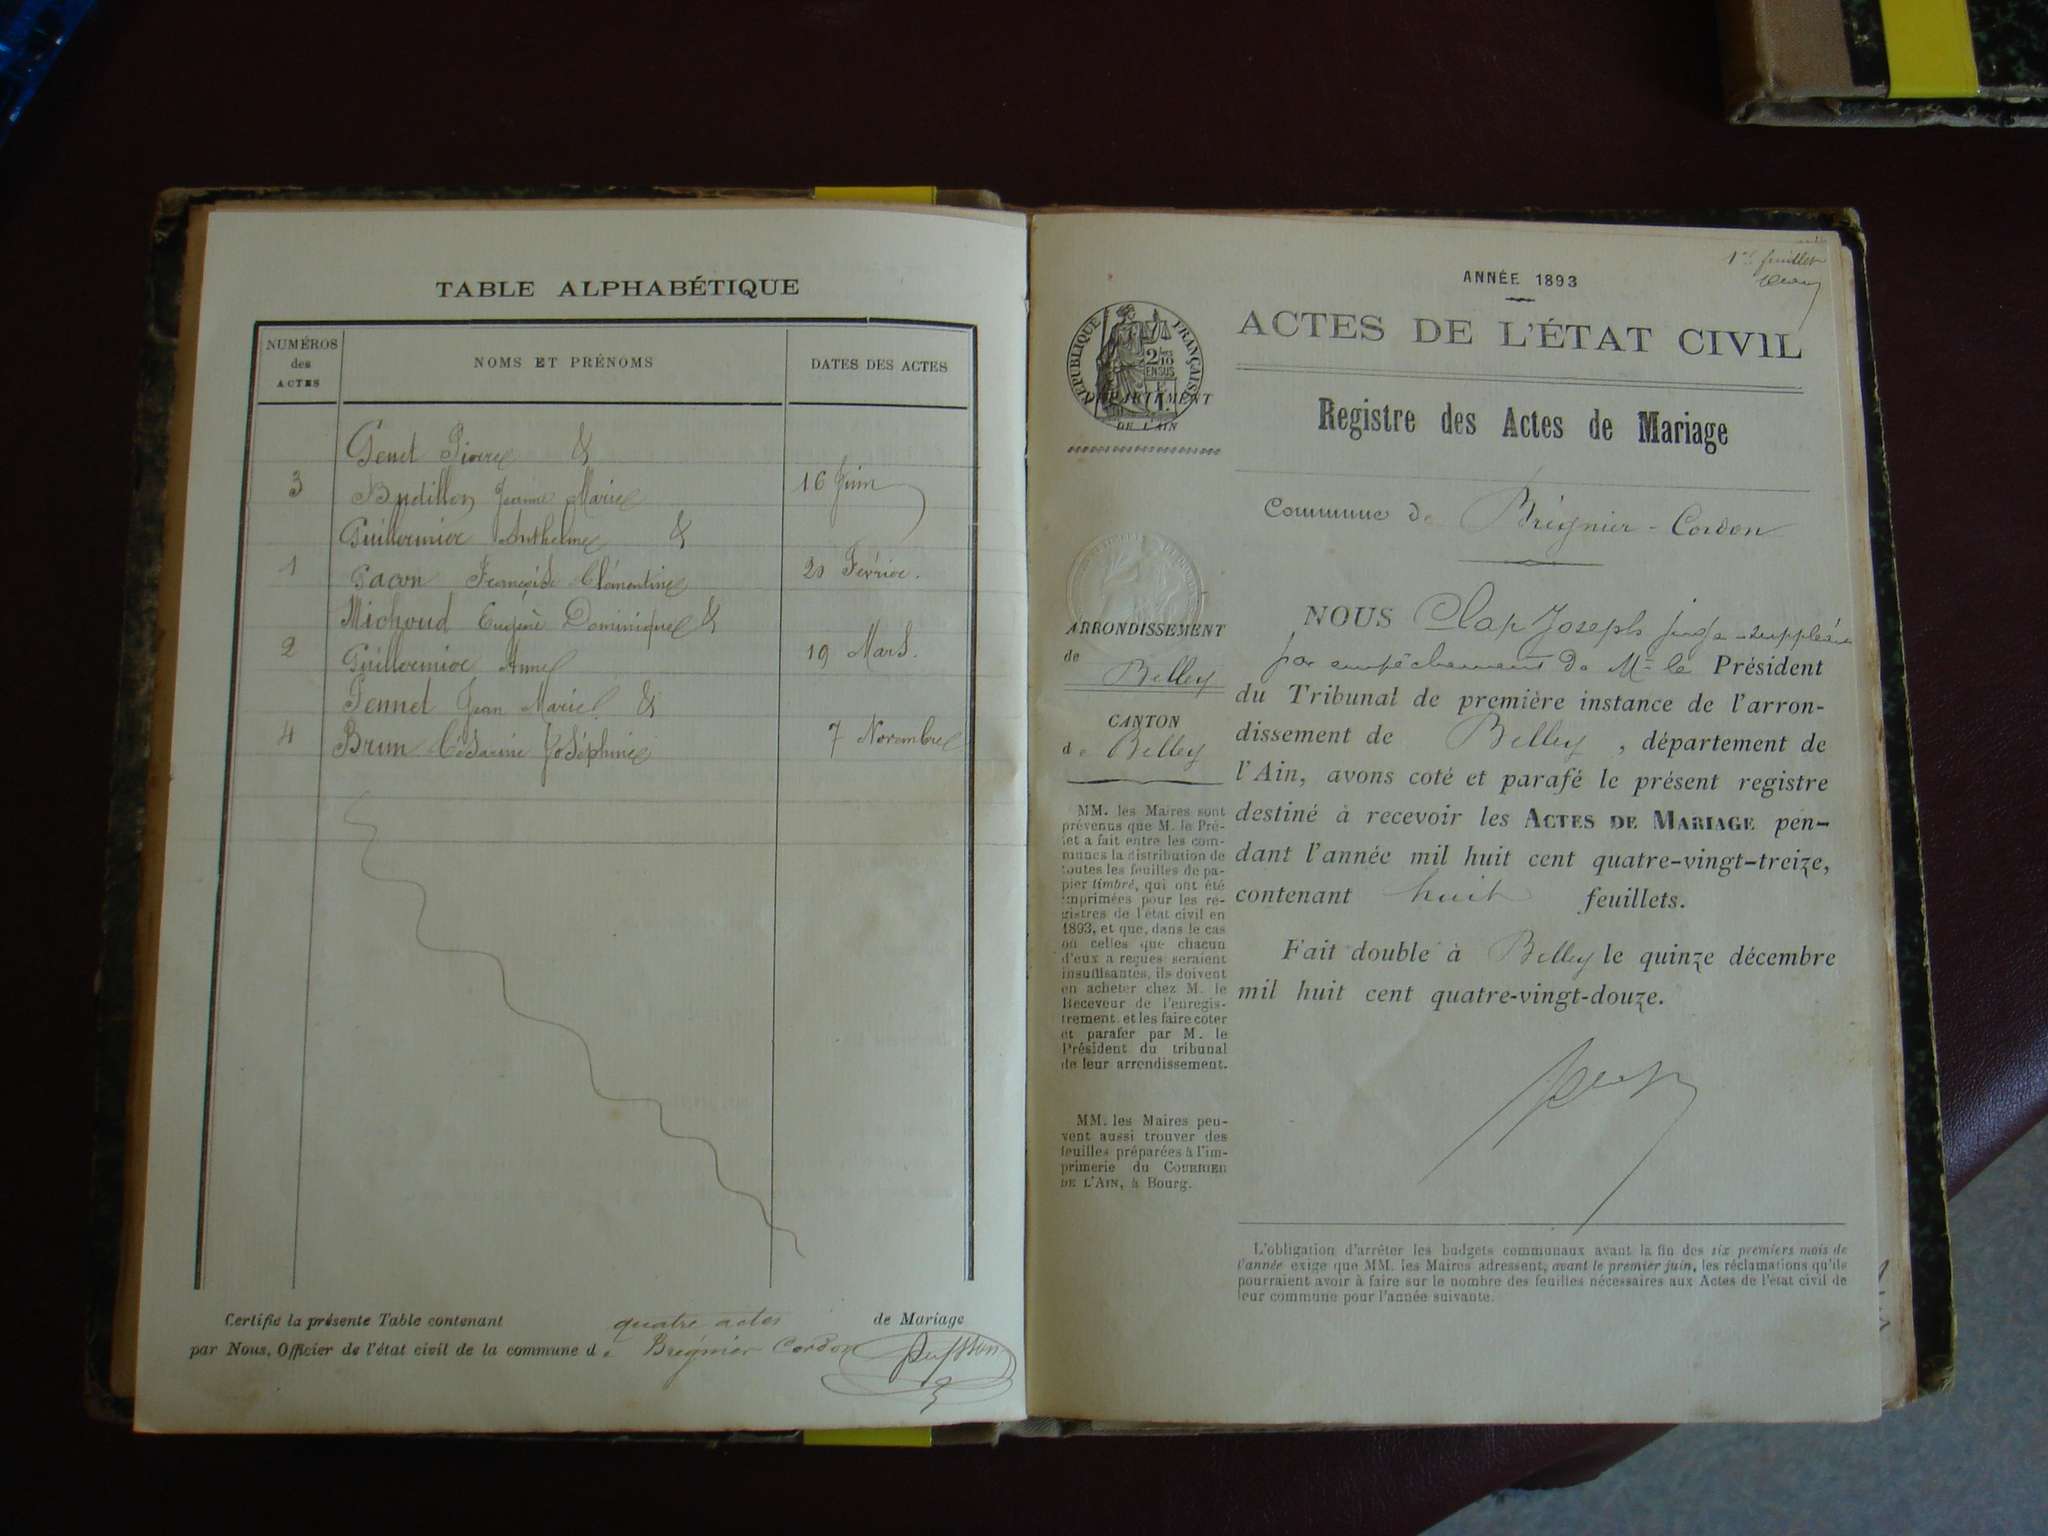 TABLE ALPHABÉTIQUE
NUMÉROS des ACTES
NOMS ET PRÉNOMS
DATES DES ACTES
Genet Pierre &
3 Budillon Jeanne Marie 16 Juin
Guillermier Anthelme &
1 Gacon Françoise Clémentine 20 Février.
Michoud Eugène Dominique &
2 Guillermier Anne 19 Mars.
Jean Marie &
4 Brun Césarine Joséphine 7 Novembre
Certifié la présente Table contenant quatre actes de Mariage
par Nous, Officier de l'état civil de la commune de Brégnier Cordon
1er feuillet
ANNÉE 1893
ACTES DE L'ÉTAT CIVIL
RÉPUBLIQUE FRANÇAISE
2/10 EN SUS
DÉPARTEMENT
DE L'AIN
Registre des Actes de Mariage
Commune de Brégnier-Cordon
ARRONDISSEMENT
de
Belley
CANTON
de Belley
MM. les Maires sont
prévenus que M. le Pré-
fet a fait entre les com-
munes la distribution de
toutes les feuilles de pa-
pier timbré, qui ont été
imprimées pour les re-
gistres de l'état civil en
1893, et que, dans le cas
où celles que chacun
d'eux a reçues seraient
insuffisantes, ils doivent
en acheter chez M. le
Receveur de l'enregis-
trement et les faire coter
et parafer par M. le
Président du tribunal
de leur arrondissement.
MM. les Maires peu-
vent aussi trouver des
feuilles préparées à l'im-
primerie du COURRIER
DE L'AIN, à Bourg.
NOUS Clap Joseph juge suppléant
par empêchement de Mr le Président
du Tribunal de première instance de l'arron-
dissement de Belley, département de
l'Ain, avons coté et parafé le présent registre
destiné à recevoir les ACTES DE MARIAGE pen-
dant l'année mil huit cent quatre-vingt-treize,
contenant huit feuillets.
Fait double à Belley le quinze décembre
mil huit cent quatre-vingt-douze.
L'obligation d'arrêter les budgets communaux avant la fin des six premiers mois de
l'année exige que MM. les Maires adressent, avant le premier juin, les réclamations qu'ils
pourraient avoir à faire sur le nombre des feuilles nécessaires aux Actes de l'état civil de
leur commune pour l'année suivante.